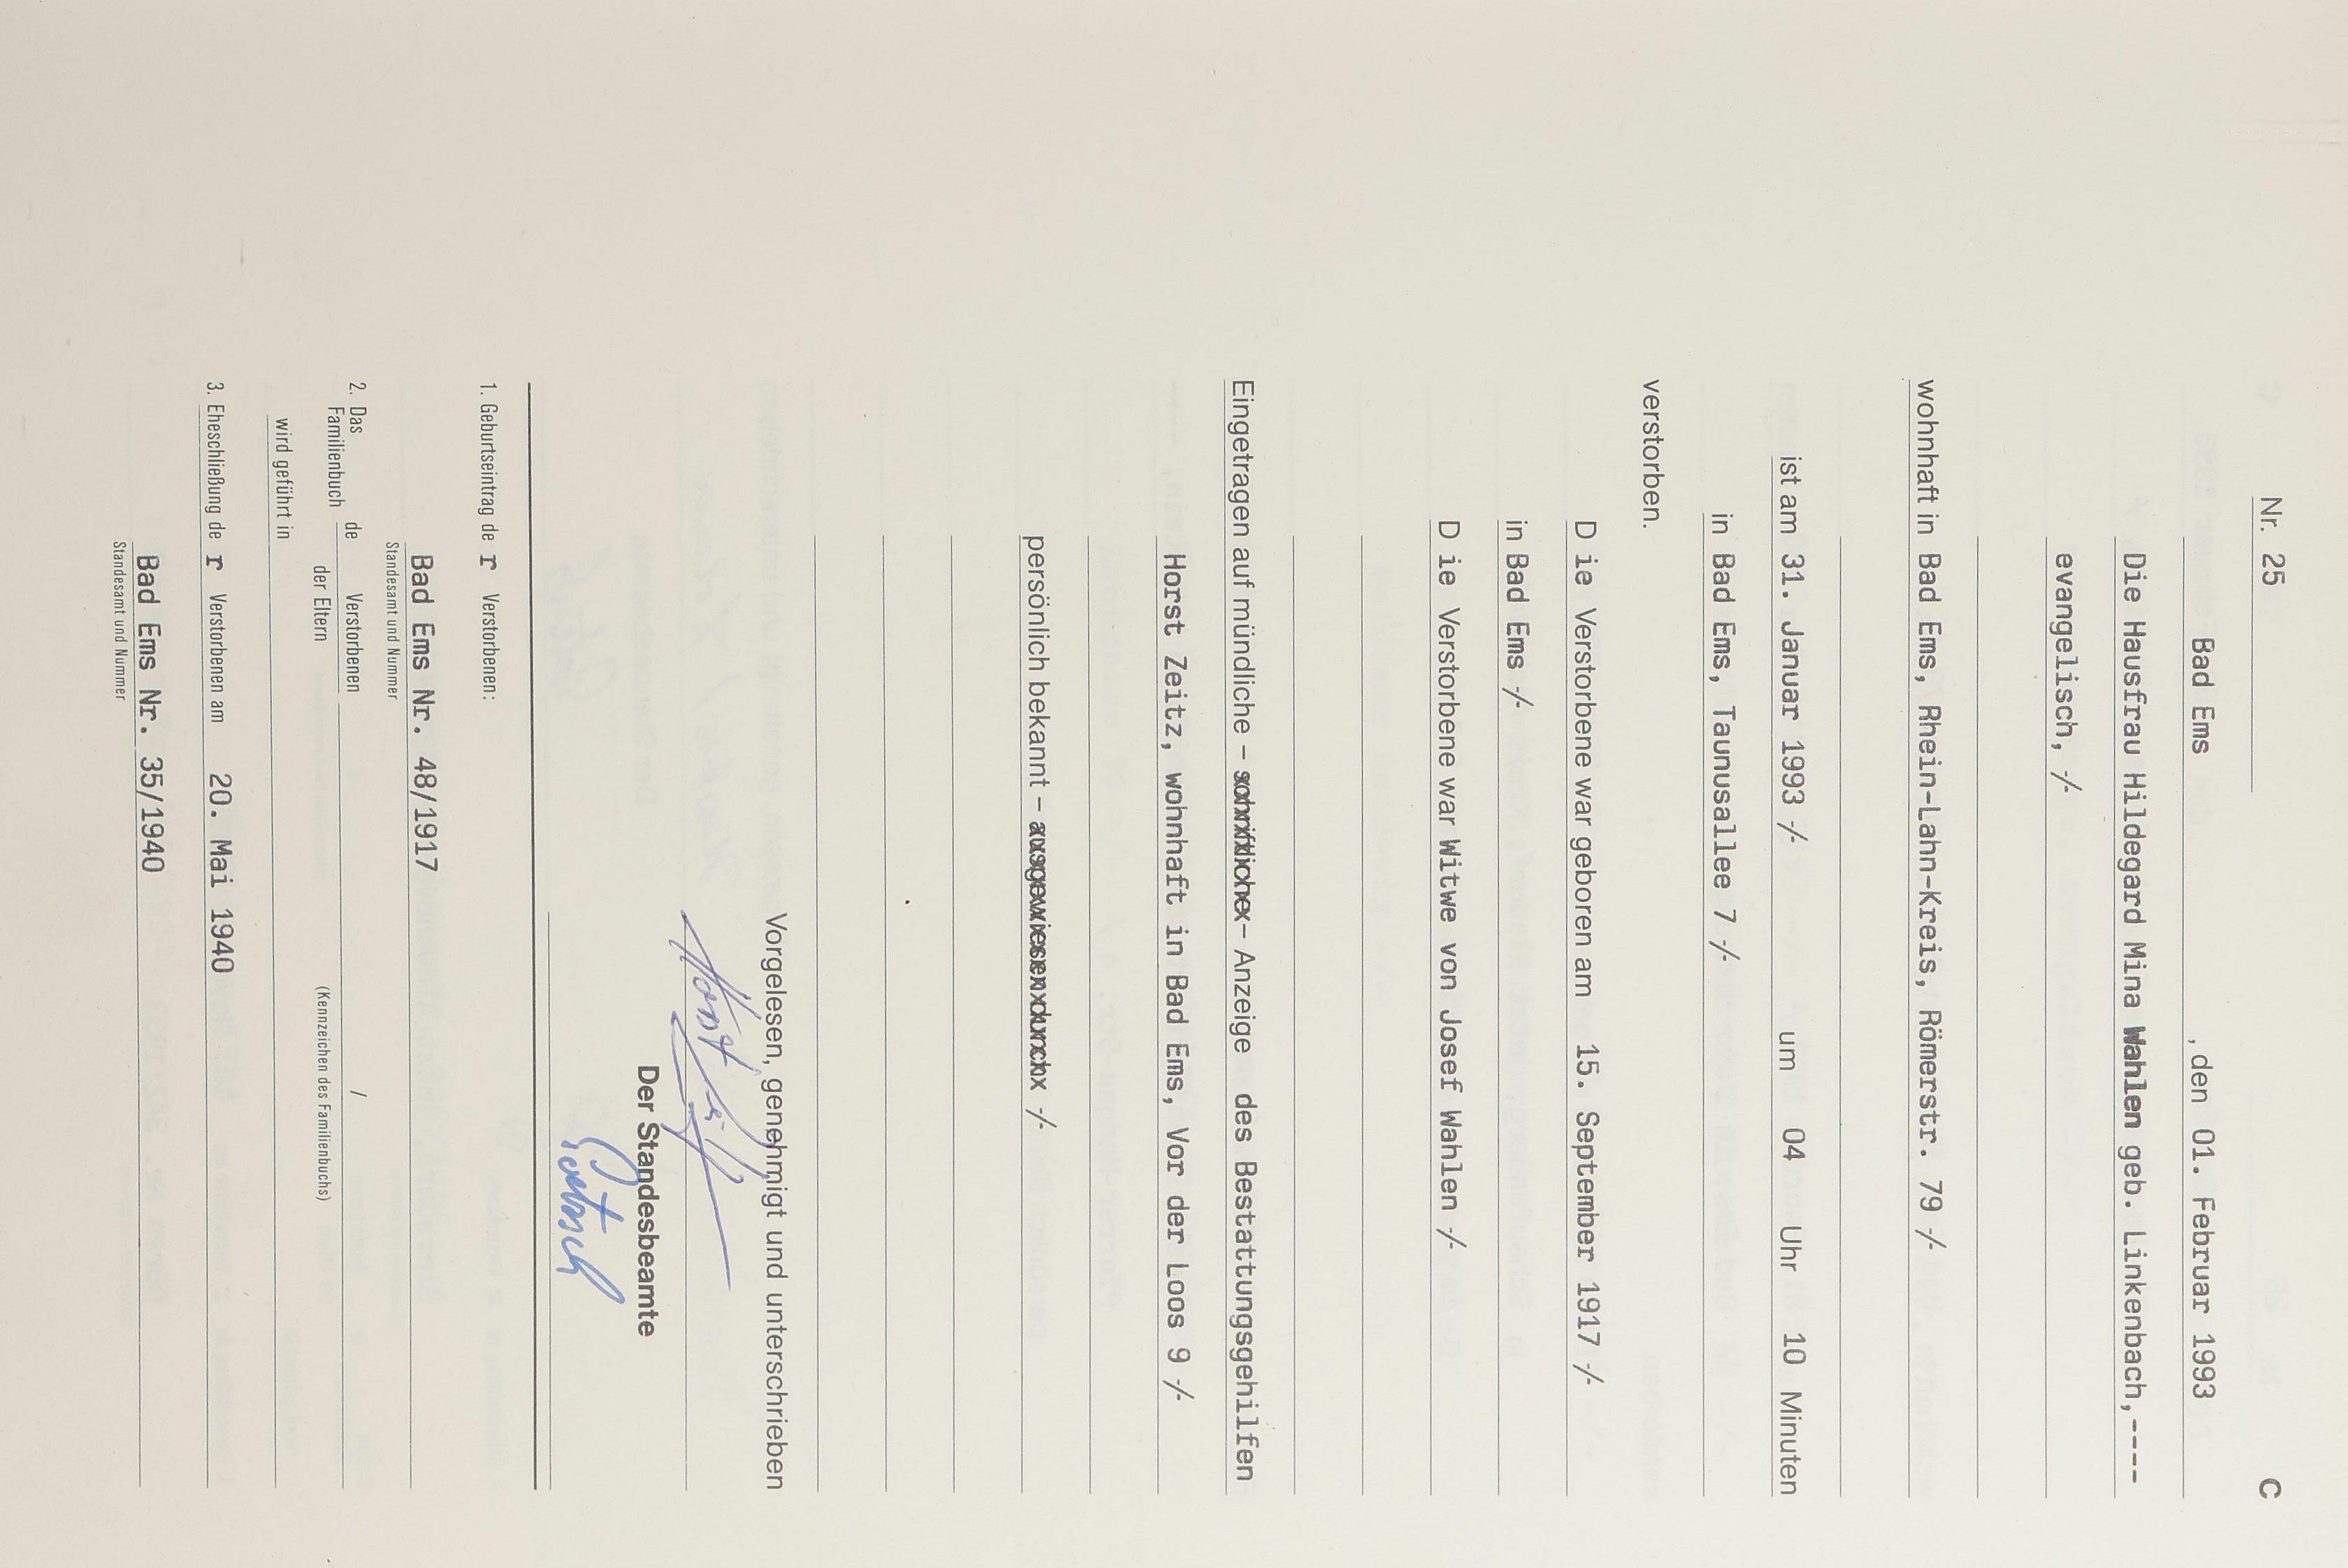 Nr. 25 C
Bad Ems , den 01. Februar 1993
Die Hausfrau Hildegard Mina Wahlen geb. Linkenbach,----
evangelisch, -/-
wohnhaft in Bad Ems, Rhein-Lahn-Kreis, Römerstr. 79 -/-
ist am 31. Januar 1993 -/- um 04 Uhr 10 Minuten
in Bad Ems, Taunusallee 7 -/-
verstorben.
D ie Verstorbene war geboren am 15. September 1917 -/-
in Bad Ems -/-
D ie Verstorbene war Witwe von Josef Wahlen -/-
Eingetragen auf mündliche – schriftliche – Anzeige des Bestattungsgehilfen
Horst Zeitz, wohnhaft in Bad Ems, Vor der Loos 9 -/-
persönlich bekannt – ausgewiesen durch -/-
Vorgelesen, genehmigt und unterschrieben
Horst Zeitz
Der Standesbeamte
1. Geburtseintrag de r Verstorbenen:
Bad Ems Nr. 48/1917
Standesamt und Nummer
2. Das Familienbuch de Verstorbenen /
der Eltern (Kennzeichen des Familienbuchs)
wird geführt in
3. Eheschließung de r Verstorbenen am 20. Mai 1940
Bad Ems Nr. 35/1940
Standesamt und Nummer